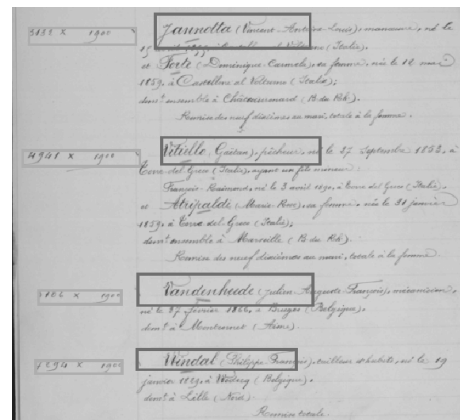 3152 X 1900 Jannotta (Vincent-Antoine-Louis), manœuvre, né le
15 août à Castellone al Volturno (Italie),
et Forte (Dominique-Carmela), sa femme, née le 12 mars
1859, à Castellone al Volturno (Italie);
demt ensemble à Châteaurenard (B. du Rh.).
Remise des neuf dixièmes au mari, totale à la femme.
4948 X 1900 Vitiello (Gaétan), pêcheur, né le 27 septembre 1852, à
Torre del Greco (Italie), ayant un fils mineur
François-Raimond, né le 3 août 1890, à Torre del Greco (Italie),
et (Marie-Rose), sa femme, née le 21 janvier
1859, à Torre del Greco (Italie);
demt ensemble à Marseille (B. du Rh.).
Remise des neuf dixièmes au mari, totale à la femme.
X 1900 Vandenheude (Julien-Auguste-François), mécanicien,
né le 27 février 1866, à Bruges (Belgique),
demt à (Aisne).
7294 X 1900 Windal (Philippe-François), tailleur d'habits, né le 19
janvier à (Belgique),
demt à Lille (Nord)
Remise totale.